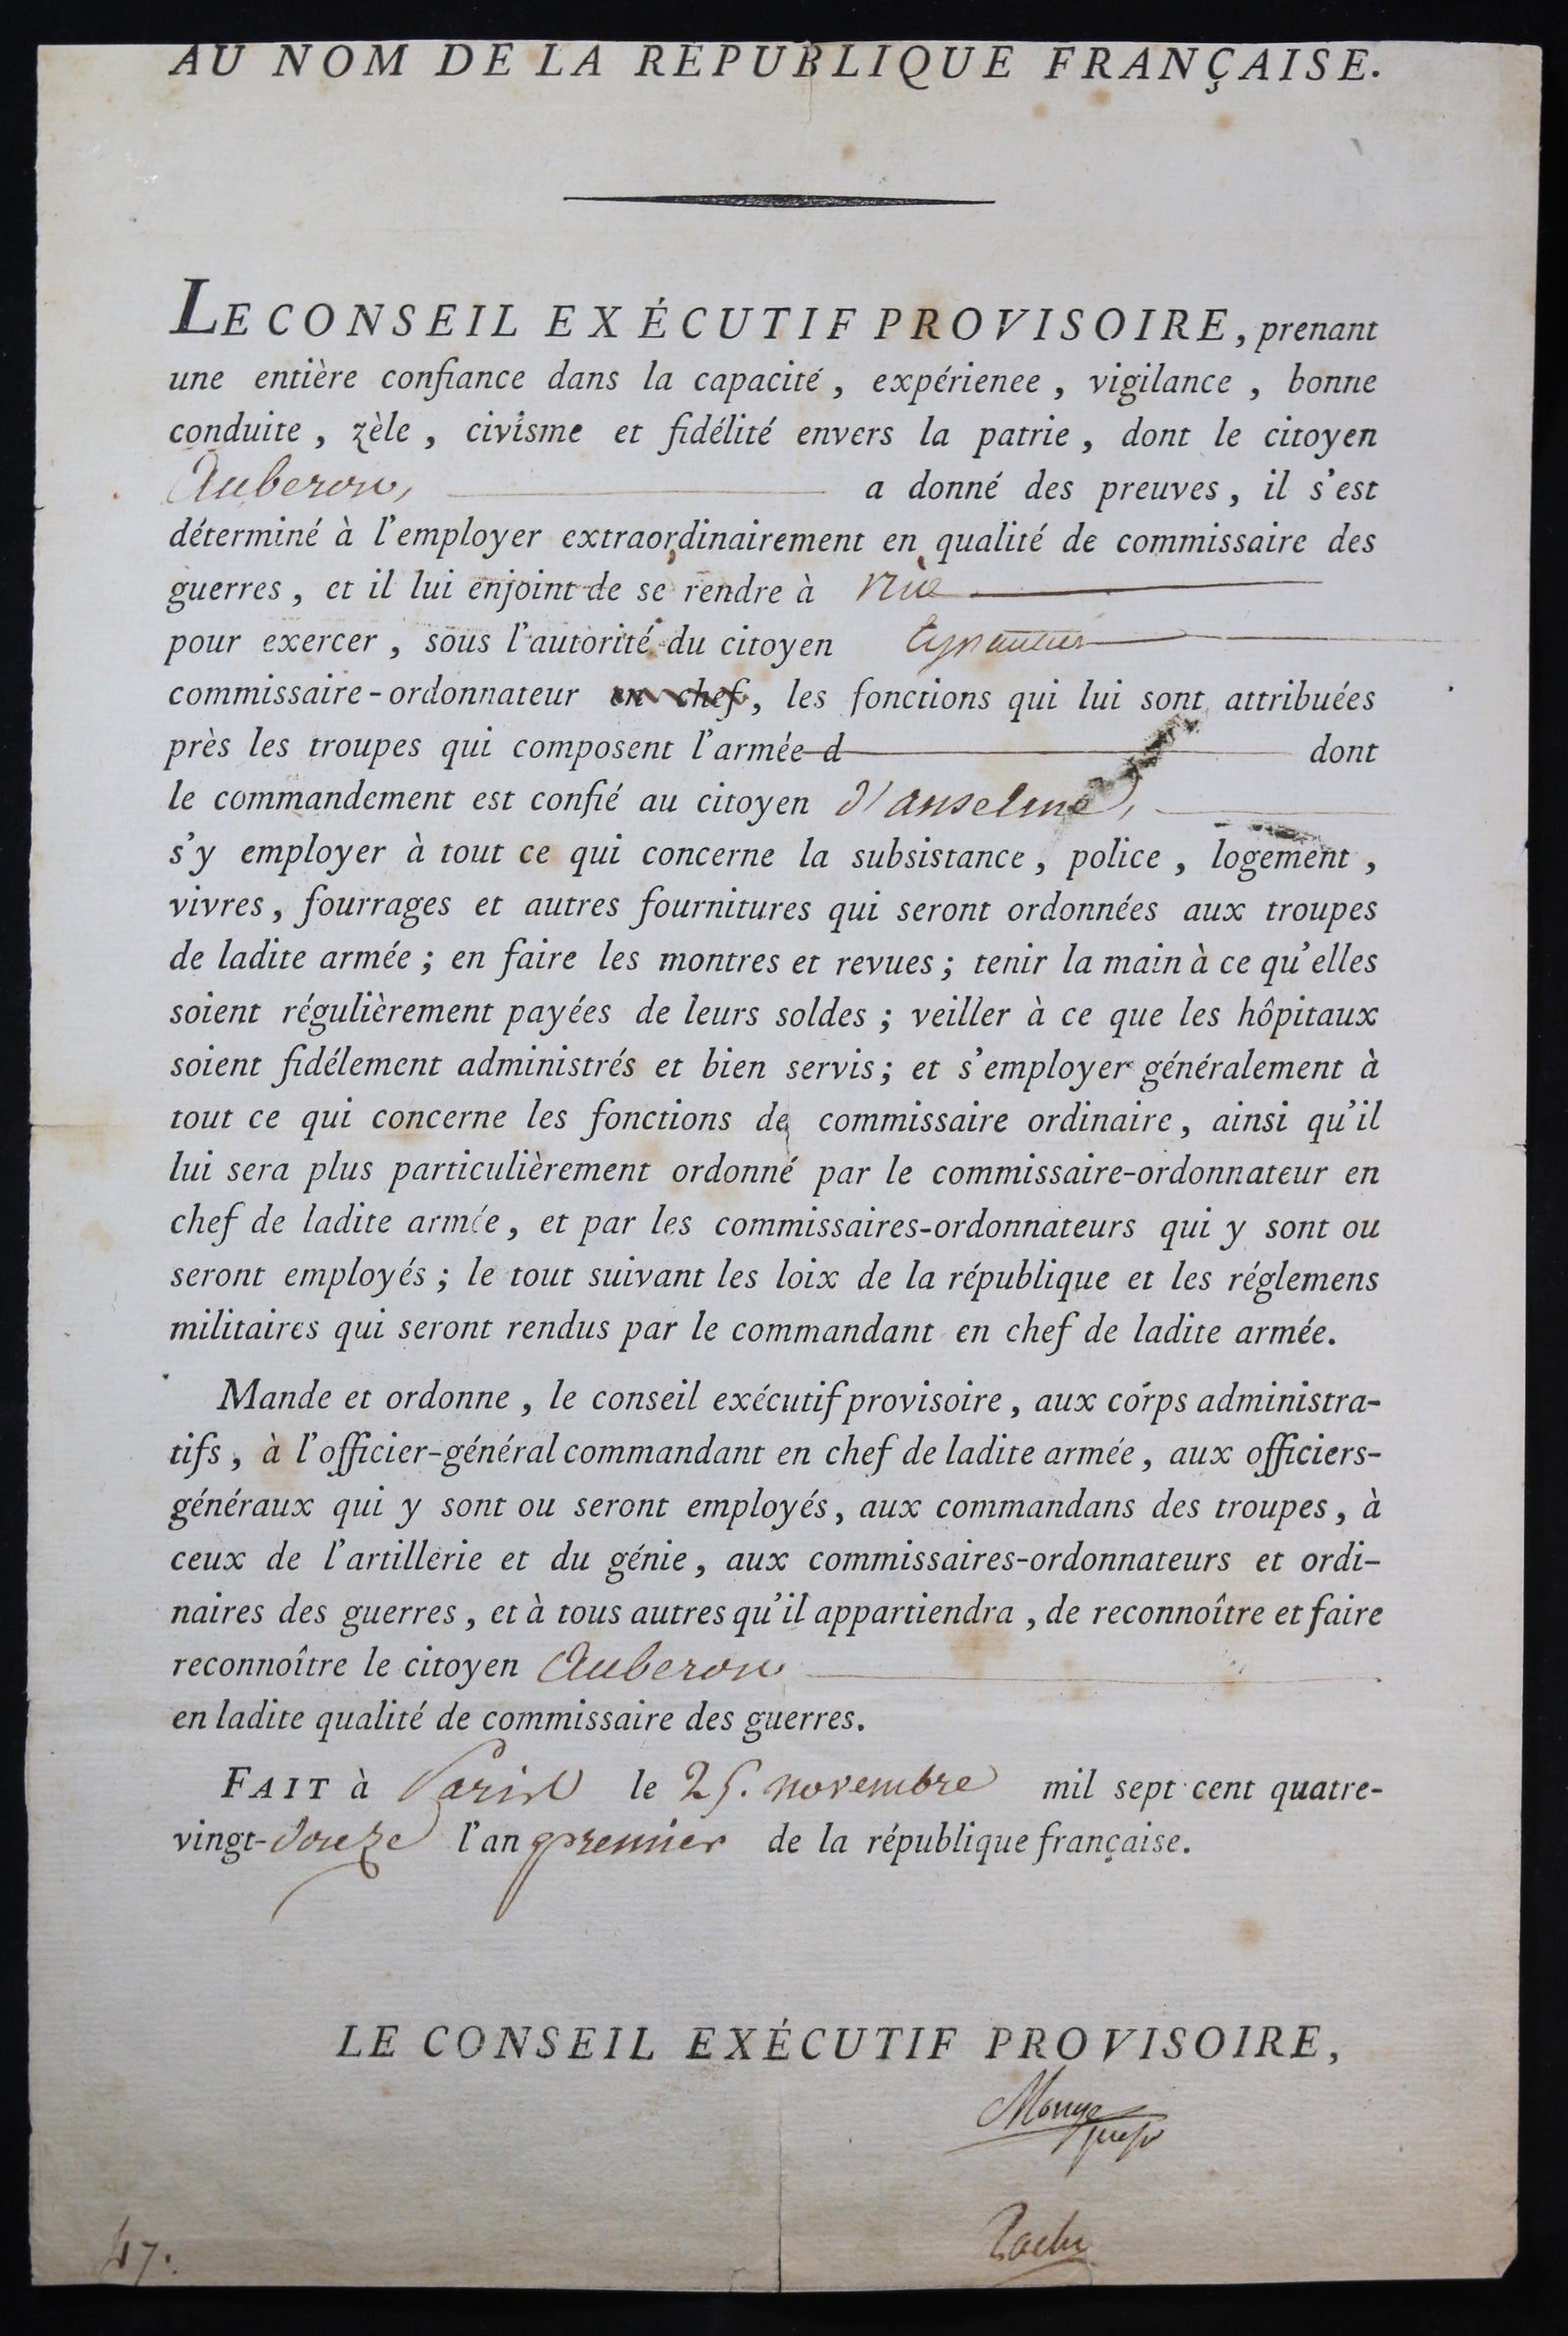 AU NOM DE LA RÉPUBLIQUE FRANÇAISE.
LE CONSEIL EXÉCUTIF PROVISOIRE, prenant
une entière confiance dans la capacité, expérienee, vigilance, bonne
conduite, zèle, civisme et fidélité envers la patrie, dont le citoyen
Auberon, a donné des preuves, il s'est
déterminé à l'employer extraordinairement en qualité de commissaire des
guerres, et il lui enjoint de se rendre à
pour exercer, sous l'autorité du citoyen
commissaire-ordonnateur en chef, les fonctions qui lui sont attribuées
près les troupes qui composent l'armée d dont
le commandement est confié au citoyen d'anselme,
s'y employer à tout ce qui concerne la subsistance, police, logement,
vivres, fourrages et autres fournitures qui seront ordonnées aux troupes
de ladite armée; en faire les montres et revues; tenir la main à ce qu'elles
soient régulièrement payées de leurs soldes; veiller à ce que les hôpitaux
soient fidélement administrés et bien servis; et s'employer généralement à
tout ce qui concerne les fonctions de commissaire ordinaire, ainsi qu'il
lui sera plus particulièrement ordonné par le commissaire-ordonnateur en
chef de ladite armée, et par les commissaires-ordonnateurs qui y sont ou
seront employés; le tout suivant les loix de la république et les réglemens
militaires qui seront rendus par le commandant en chef de ladite armée.
Mande et ordonne, le conseil exécutif provisoire, aux corps administra-
tifs, à l'officier-général commandant en chef de ladite armée, aux officiers-
généraux qui y sont ou seront employés, aux commandans des troupes, à
ceux de l'artillerie et du génie, aux commissaires-ordonnateurs et ordi-
naires des guerres, et à tous autres qu'il appartiendra, de reconnoître et faire
reconnoître le citoyen Auberon
en ladite qualité de commissaire des guerres.
FAIT à Paris le 25. novembre mil sept cent quatre-
vingt-douze l'an premier de la république française.
LE CONSEIL EXÉCUTIF PROVISOIRE,
Monge
Pache
47.